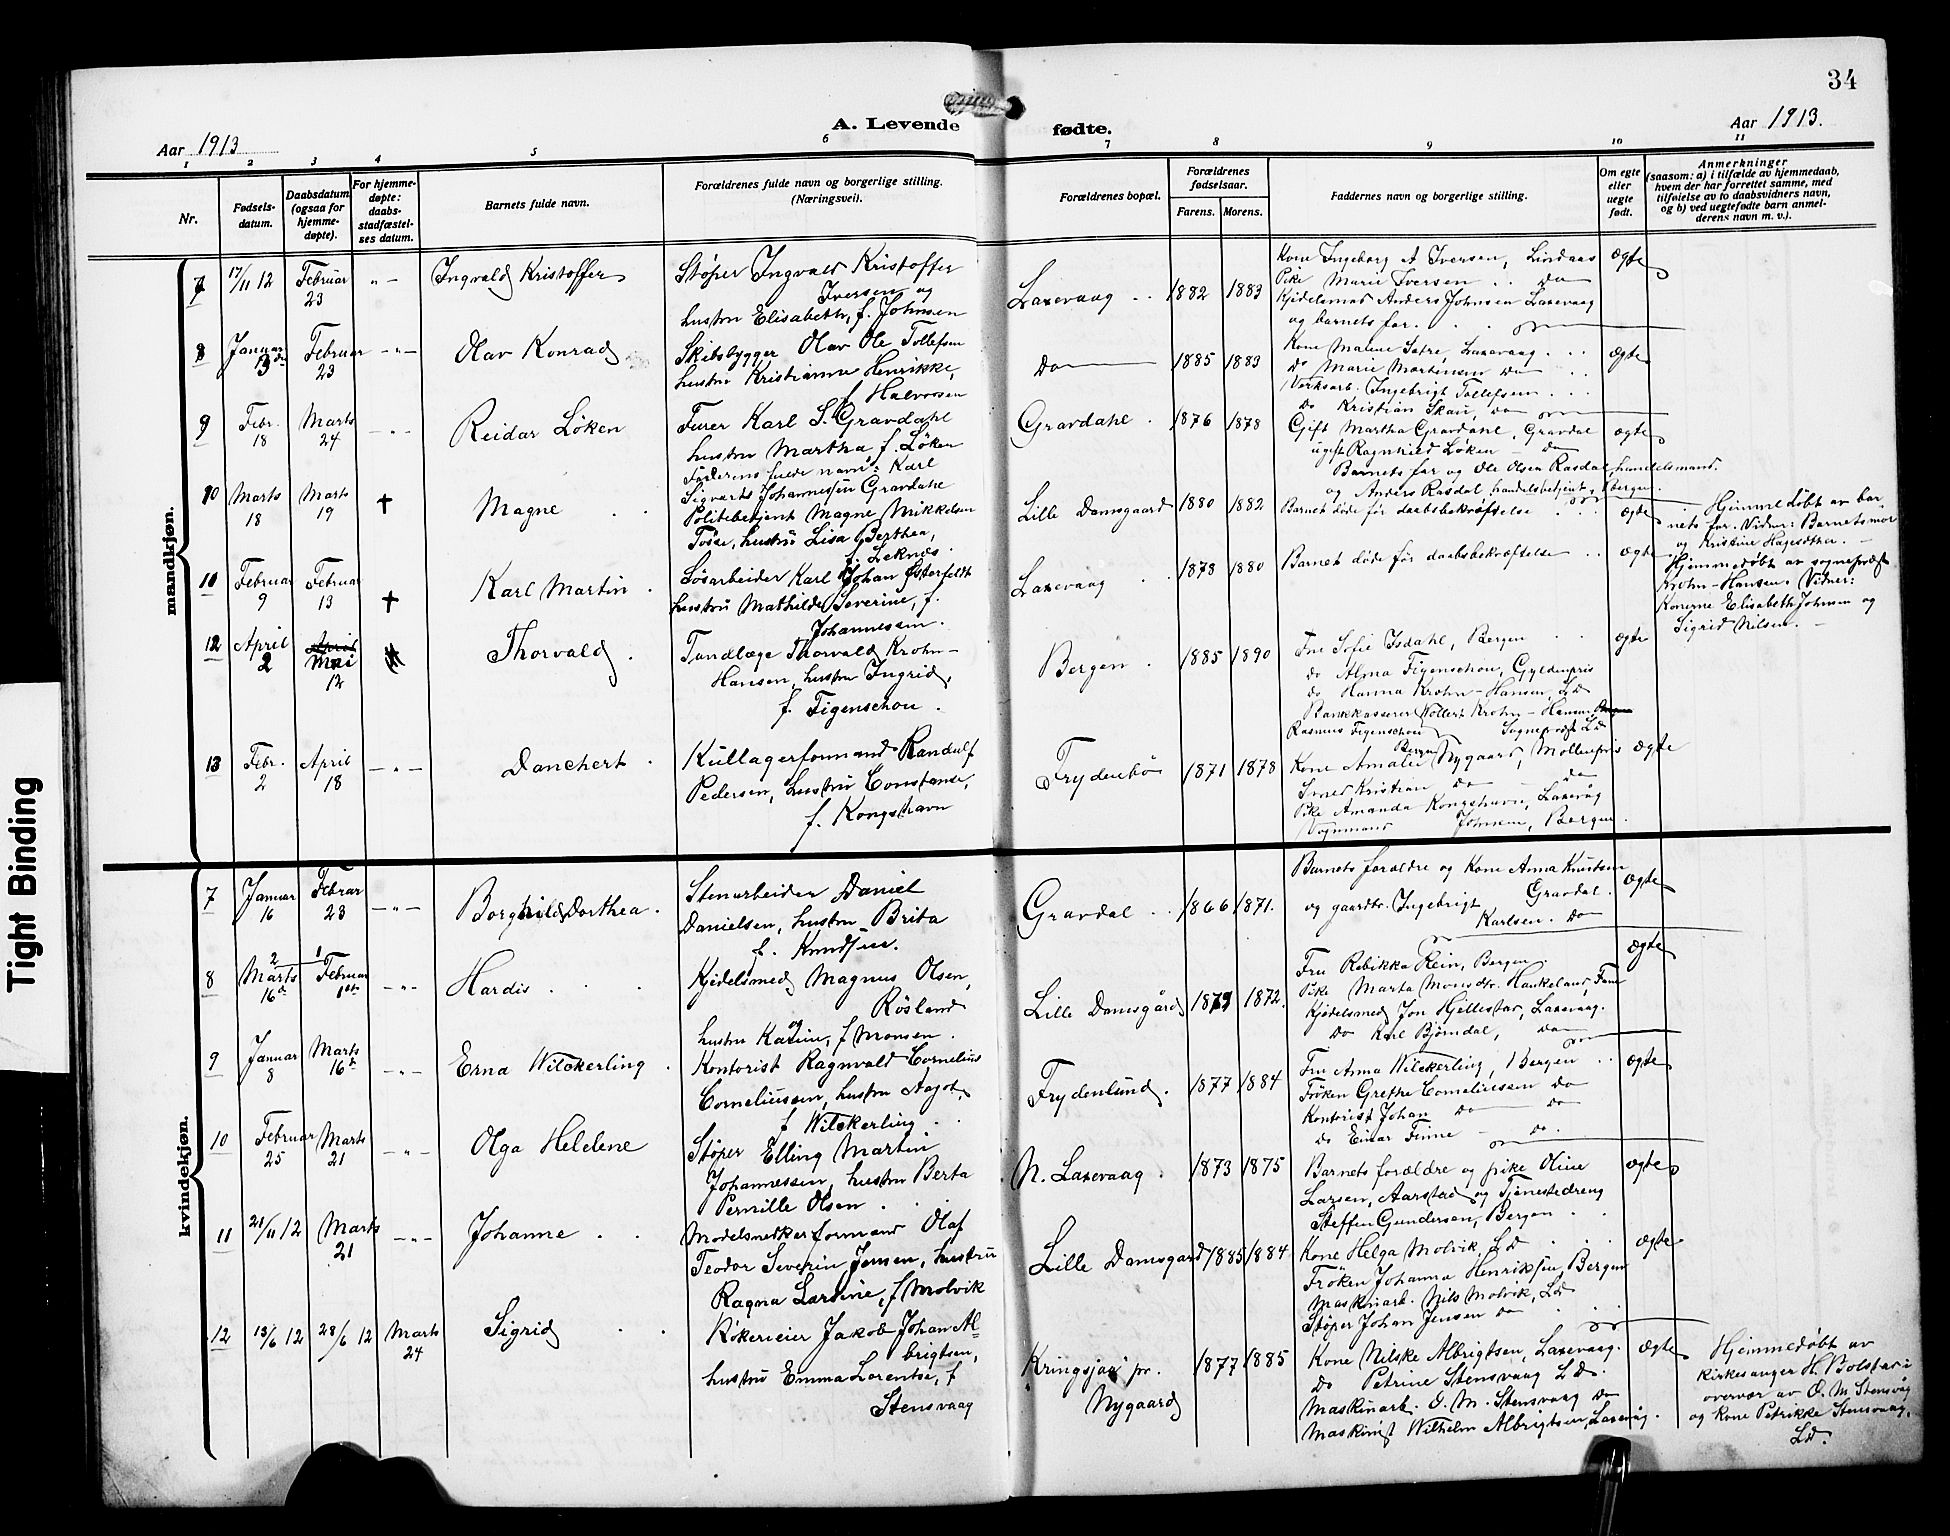 34
A. Levende fødte.
Aar 1913
Aar 1913.
1 2 3 4 5 6 7 8 9 10 11
Nr.
Fødsels-
datum.
Daabsdatum
(ogsaa for
hjemme-
døpte).
For hjemme-
døpte:
daabs-
stadfæstel-
ses datum.
Barnets fulde navn.
Forældrenes fulde navn og borgerlige stilling.
(Næringsvei).
Forældrenes bopæl.
Forældrenes
fødselsaar.
Farens. Morens.
Faddernes navn og borgerlige stilling.
Om egte
eller
uegte
født.
Anmerkninger
(saasom: a) i tilfælde av hjemmedaab,
hvem der har forrettet samme, med
tilføielse av to daabsvidners navn,
og b) ved uegtefødte barn anmel-
derens navn m. v.).
mandkjøn.
7
17/11 12
Februar
23
- " -
Ingvald Kristoffer
Støper Ingvald Kristoffer
Iversen og
hustru Elisabeth, f. Johnsen
Laxevaag
1882 1883
Kone Ingeborg A Iversen, Lindaas
Pike Marie Iversen . . Do
Kjedelsmed Anders Johnsen Laxevaag
og barnets far.
Ægte
8
Januar
13de
Februar
23
- " -
Olav Konrad
Skibsbygger Olav Ole Tollefsen
hustru Kristianna Henrikke,
f Halvorsen
Do
1885 1883
Kone Malene Sætre, Laxevaag
Do Marie Martinsen Do
Verksarb. Ingebrigt Tollefsen
Do Kristian Skau, Do
Ægte
9
Febr.
18
Marts
24
- " -
Reidar Løken
Furer Karl S. Gravdahl
hustru Martha f. Løken
Faderens fulde navn: Karl
Sigvards Johannessen Gravdahl
Gravdahl
1876 1878
Gift Martha Gravdahl, Gravdal
ugift Ragnhild Løken - Do
Barnets far og Ole Olsen Rasdal, handelsmand.
og Anders Rasdal, handelsbetjent, Bergen.
Ægte
10
Marts
18
Marts
19
†
Magne
Politibetjent Magne Mikkelsen
Tosse, hustru Lisa Berthea,
f. Leknes.
Lille Damsgaard
1880 1882
Barnet døde før daabsbekræftelse
Ægte
Hjemmedøbt av bar-
nets far. Vidner: Barnets mor
og Kristine Hagesæther.
11
Februar
9
Februar
13
†
Karl Martin
Løsarbeider Karl Johan Østerfeldt
hustru Mathilde Severine, f.
Johannessen.
Laxevaag
1878 1880
Barnet døde før daabsbekræftelse
Ægte
Hjemmedøbt av sogneprest
Krohn-Hansen. Vidner:
Konerne Elisabeth Johnsen og
Sigrid Nilsen.
12
April
2
April
Mai
12
Thorvald
Tandlæge Thorvald Krohn-
Hansen, hustru Ingrid,
f. Figenschou
Bergen
1885 1890
Fru Sofie Isdahl, Bergen
Do Alma Figenschou, Gyldenpris
Do Hanna Krohn-Hansen, Ld
Bankkasserer Wollert Krohn-Hansen Bergen
Rasmus Figenschou Sogneprest Ld
Bergen
Ægte
13
Febr.
2
April
18
- " -
Danchert
Kullagerformand Randulf
Pedersen, hustru Constance,
f. Kongshavn
Frydenbø
1871 1878
Kone Amalie Nygaard, Møllenpris
Smed Kristian Do Do
Pike Amanda Kongshavn, Laxevåg
Vognmand Johnsen, Bergen.
Ægte
kvindekjøn.
7
Januar
16
Februar
23
- " -
Borghild Dorthea
Stenarbeider Daniel
Danielsen, hustru Brita
f. Knudsen.
Gravdal
1866 1871.
Barnets forældre og Kone Anna Knutsen
Gravdal.
og gaardbr. Ingebrigt
Karlsen. Do
Ægte
8
2 1
Marts
16de
Februar
1ste
- " -
Hardis
Kjedelsmed Magnus Olsen,
Røsland
og
hustru Karine, f Monsen.
Lille Damsgård
1879 1872.
Fru Rebikka Rein, Bergen.
Pike Marta Monsdtr. Haukeland, Fane
Kjedelsmed Jon Hjellestad, Laxevaag.
Do Karl Bjørndal, Do
Ægte
9
Januar
8
Marts
16de
- " -
Erna Wilckerling
Kontorist Ragnvald Cornelius
Corneliussen, hustru Aagot,
f Wilckerling
Frydenlund.
1877 1884
Fru Anna Wilckerling, Bergen
Frøken Grethe Corneliussen Do
Kontorist Johan Do Do
Do Einar Finne - Do.
Ægte
10
Februar
25
Marts
21
- " -
Olga Helelene
Støper Elling Martin
Johannessen, hustru Berta
Pernille Olsen
N. Laxevaag
1873 1875
Barnets forældre og pike Oline
Larsen, Aarstad og Tjenestedreng
Steffen Gundersen, Bergen
Ægte
11
21/11 12
Marts
21
- " -
Johanne
Modelsnedkerformand Olaf
Teodor Severin Jensen, hustru
Ragna Larsine, f Molvik
Lille Damsgard
1885 1884
Kone Helga Molvik, Ld
Frøken Johanna Henriksen, Bergen
Maskinarb. Nils Molvik, Ld
Støper Johan Jensen Do
Ægte
12
13/6 12
28/6 12
Marts
24
Sigrid
Røkerieier Jakob Johan Al-
brigtsen,
hustru Emma Lorentse, f
Stensvaag
Kringsjaa pr.
Nygaard
1877 1885
Kone Nilske Albrigtsen, Laxevaag.
Do Petrine Stensvaag Ld.
Maskinarb. O. M. Stensvaag Do
Maskinist Wilhelm Albrigtsen, Laxevåg.
Ægte
Hjemmedøbt av
kirkesanger H. Bolstad i
overvær av O. M. Stensvåg
og Kone Petrikke Stensvaag,
Ld.
Tight Binding